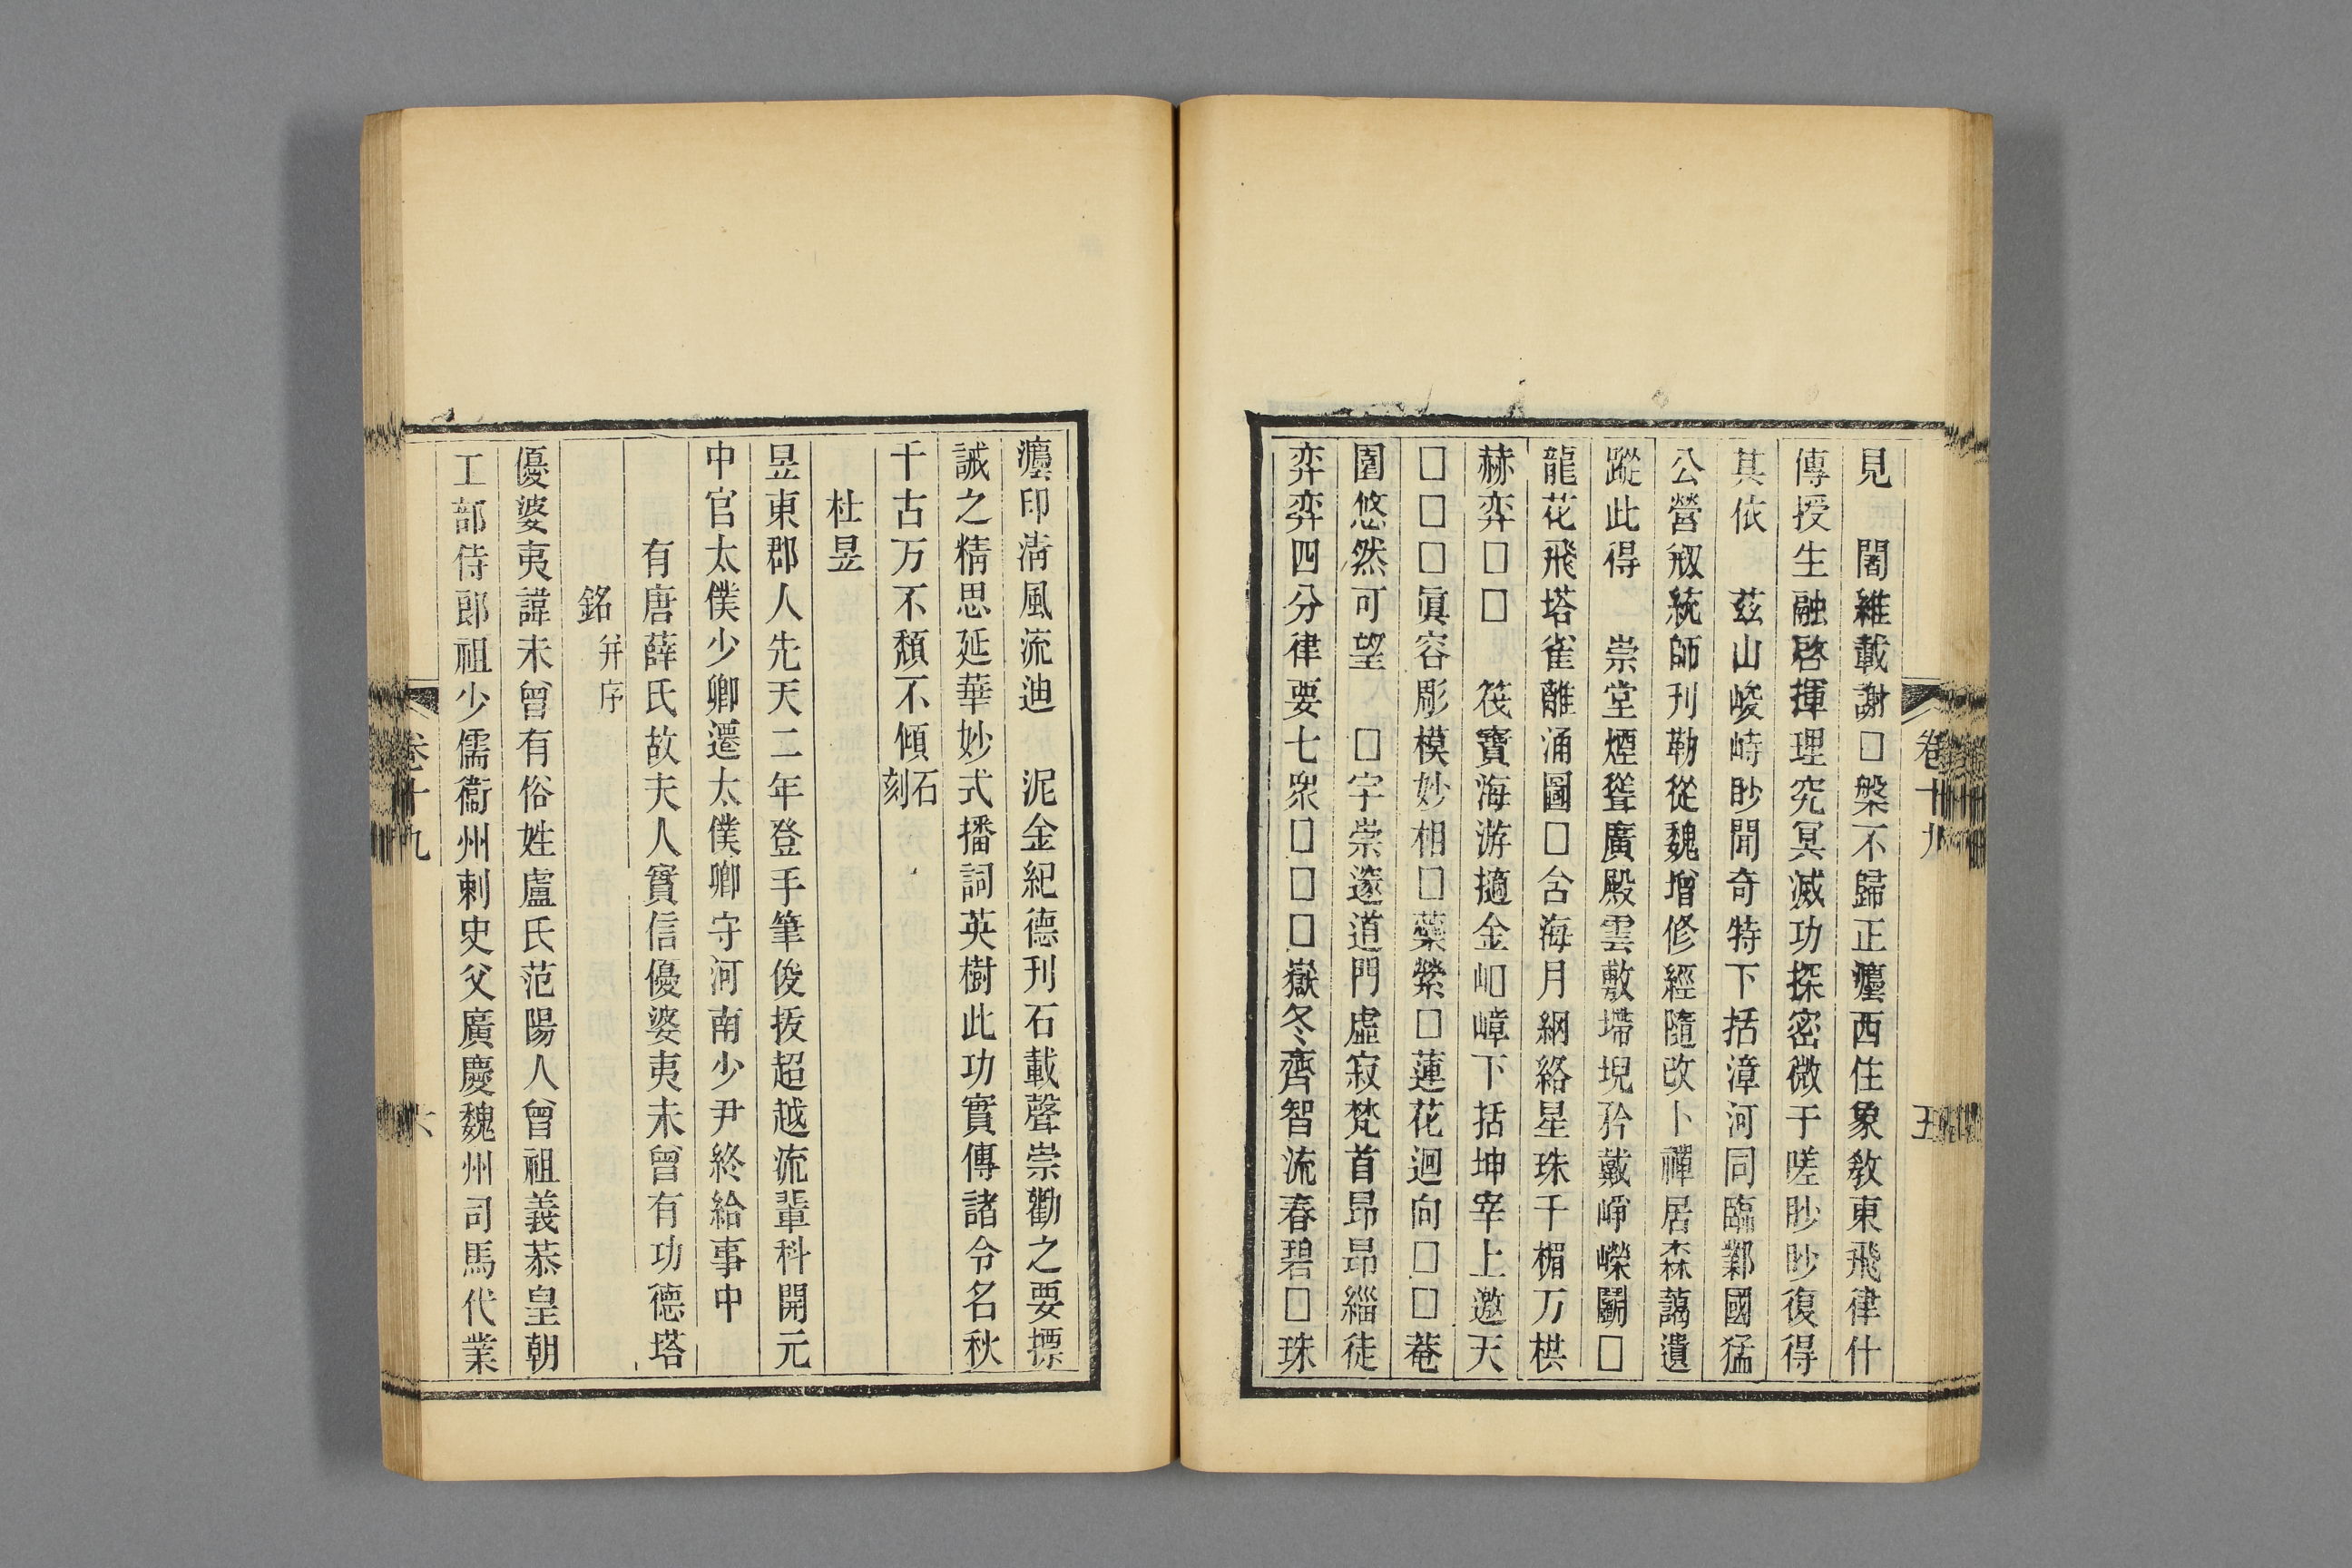 見　闍維載謝□槃不歸正灋西住象敎東飛律什
傳授生融啓揮理究冥滅功探密微于嗟眇眇復得
其依　茲山峻峙眇聞奇特下括漳河同臨鄴國猛
公營剏統師刊勒從魏增修經隨改卜禪居森藹遺
蹤此得　崇堂煙聳廣殿雲敷墆堄矜戴崢嶸鬬□
龍花飛塔雀離涌圖□含海月網絡星珠千楣万栱
赫弈□□　筏寶海游擿金岫嶂下括坤宰上邀天
□□□眞容彫模妙相□藥縈□蓮花迴向□□菴
園悠然可望　□宇崇邃道門虛寂梵首昂昂緇徒
弈弈四分律要七衆□□□嶽冬齊智流春碧□珠
卷十九
五
灋印淸風流迪　泥金紀德刊石載聲崇勸之要摽
誠之精思延華妙式播詞英樹此功實傳諸令名秋
千古万不頹不傾石刻
杜昱
昱東郡人先天二年登手筆俊拔超越流輩科開元
中官太僕少卿遷太僕卿守河南少尹終給事中
有唐薛氏故夫人實信優婆夷未曾有功德塔
銘并序
優婆夷諱未曾有俗姓盧氏范陽人曾祖義恭皇朝
工部侍郎祖少儒衞州刺史父廣慶魏州司馬代業
卷十九
六